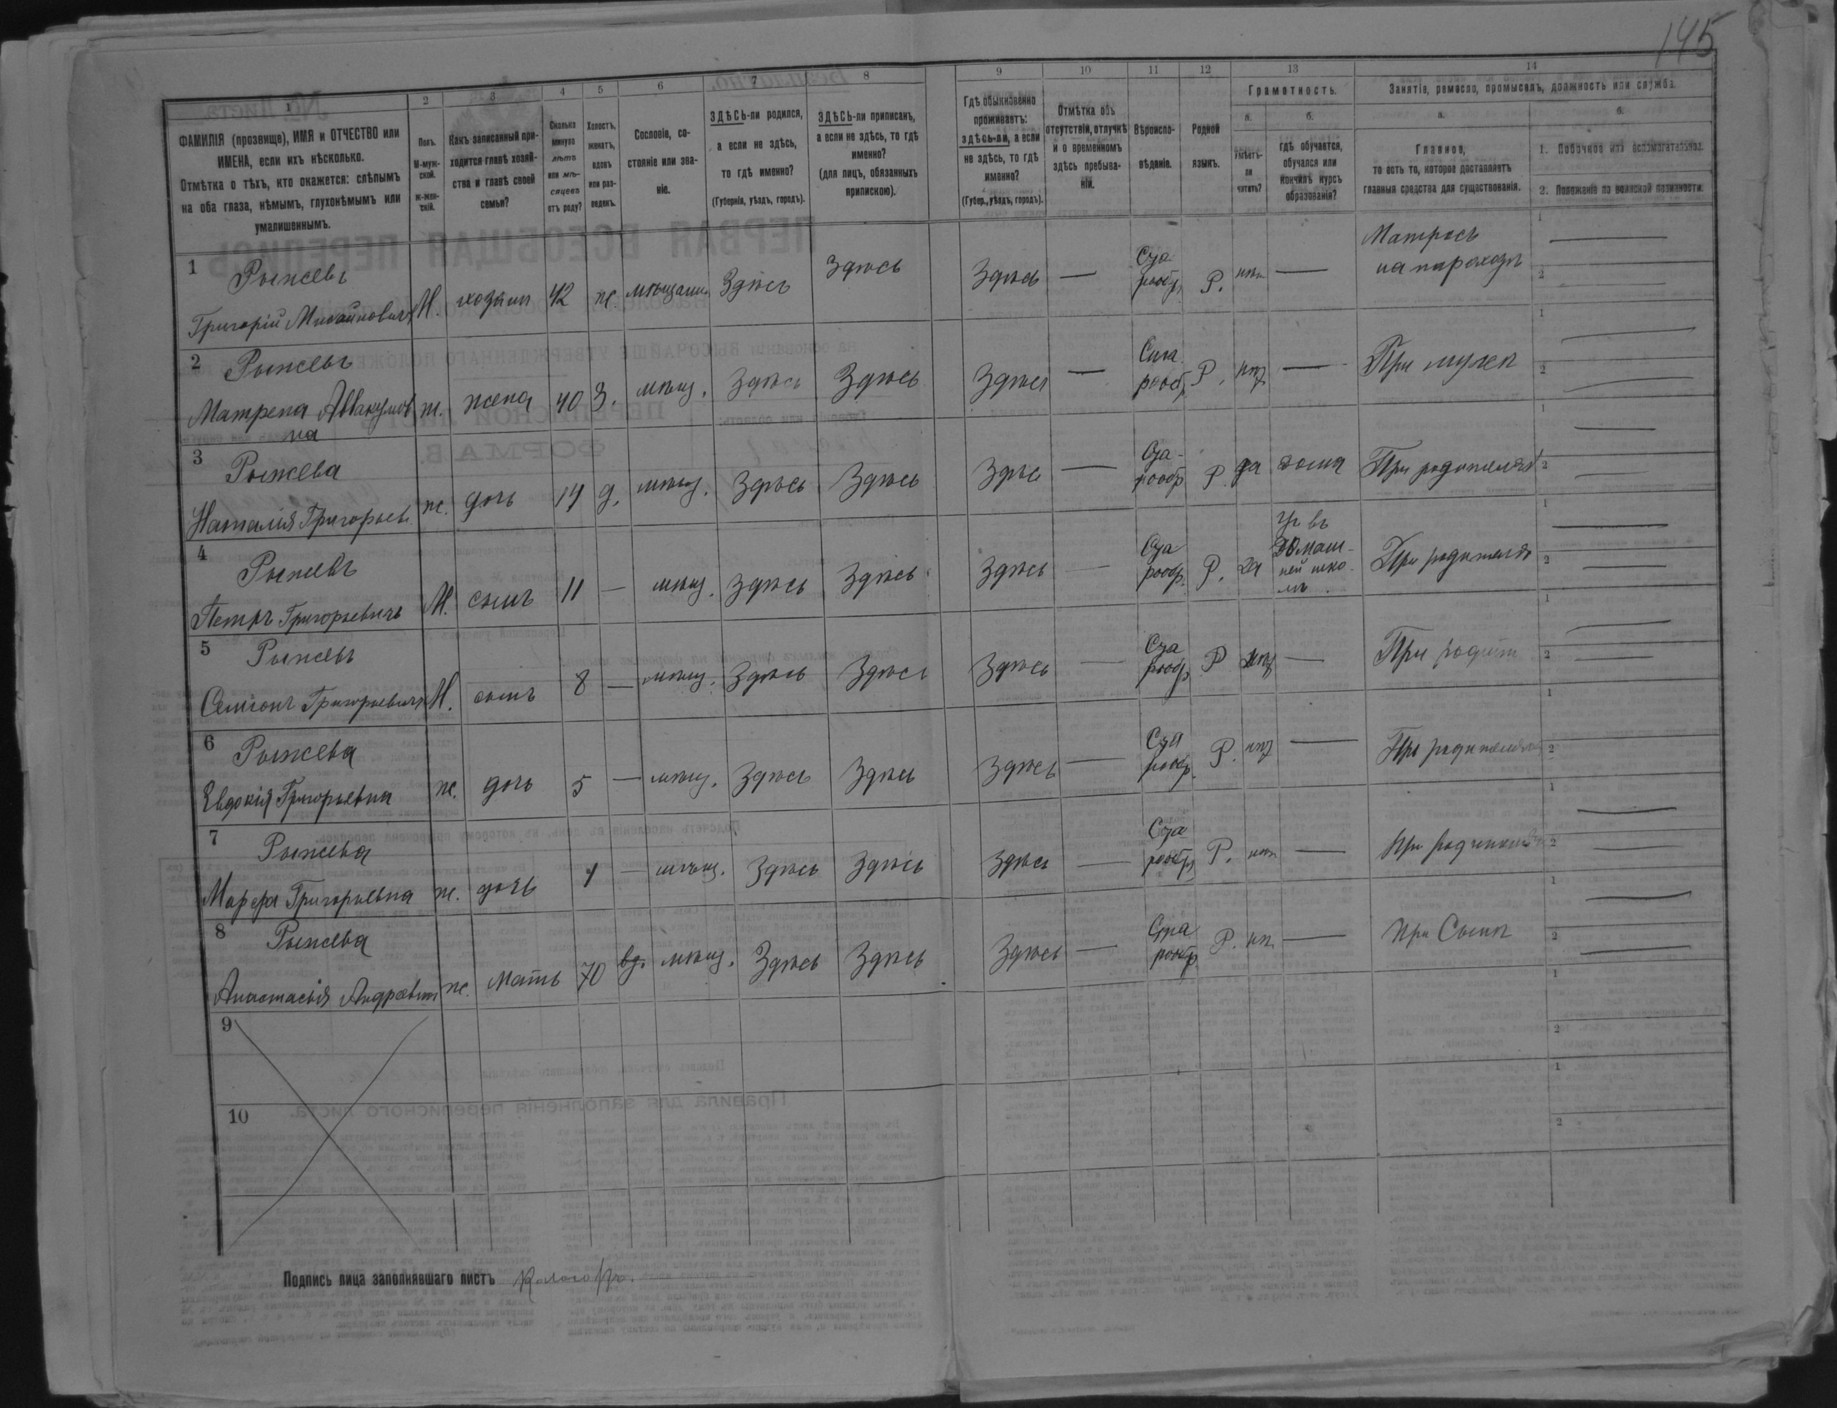 145
1 2 3 4 5 6 7 8 9 10 11 12 13 14
ФАМИЛІЯ (прозвище), ИМЯ и ОТЧЕСТВО или
ИМЕНА, если ихъ нѣсколько.
Отмѣтка о тѣхъ, кто окажется: слѣпымъ
на оба глаза, нѣмымъ, глухонѣмымъ или
умалишеннымъ.
Полъ.
М-муж-
ской.
Ж-жен-
скій.
Какъ записанный при-
ходится главѣ хозяй-
ства и главѣ своей
семьи?
Сколько
минуло
лѣтъ
или мѣ-
сяцевъ
отъ роду?
Холостъ,
женатъ,
вдовъ
или раз-
веденъ.
Сословіе, со-
стояніе или зва-
ніе.
ЗДѢСЬ-ли родился,
а если не здѣсь,
то гдѣ именно?
(Губернія, уѣздъ, городъ).
ЗДѢСЬ-ли приписанъ,
а если не здѣсь, то гдѣ
именно?
(для лицъ, обязанныхъ
припискою).
Гдѣ обыкновенно
проживаетъ:
здѣсь-ли, а если
не здѣсь, то гдѣ
именно?
(Губер., уѣздъ, городъ).
Отмѣтка объ
отсутствіи, отлучкѣ
и о временномъ
здѣсь пребыва-
ніи.
Вѣроиспо-
вѣданіе.
Родной
языкъ.
Грамотность.
а.
Умѣетъ-
ли
читать?
б.
гдѣ обучается,
обучался или
кончилъ курсъ
образованія?
Занятіе, ремесло, промыселъ, должность или служба.
а.
Главное,
то есть то, которое доставляетъ
главныя средства для существованія.
б.
1. Побочное или вспомогательное.
2. Положеніе по воинской повинности.
1 Рыжевъ
Григорій Михайловичъ М. хозяинъ 42 ж. мѣщанин Здѣсь Здѣсь Здѣсь — Ста
рообр. Р. нѣт — Матросъ
на пароходѣ
2 Рыжевъ
Матрена Аввакумов
на ж. жена 40 З. мѣщ. Здѣсь Здѣсь Здѣсь — Ста
рообр. Р. нѣт — При мужѣ
3 Рыжева
Наталія Григорьев ж. дочь 14 д. мѣщ. Здѣсь Здѣсь Здѣсь — Ста-
рообр Р. да дома При родителях
4 Рыжевъ
Петръ Григорьевичъ М. сынъ 11 — мѣщ. Здѣсь Здѣсь Здѣсь — Ста
рообр. Р. да Уч въ
домаш-
ней шко-
лѣ При родителях
5 Рыжевъ
Григорьевичъ М. сынъ 8 — мѣщ. Здѣсь Здѣсь Здѣсь — Ста
рообр. Р нѣт — При родит
6 Рыжева
Евдокія Григорьевна ж. дочь 5 — мѣщ. Здѣсь Здѣсь Здѣсь — Ста
рообр. Р. нѣт — При родителях
7 Рыжева
Григорьевна ж. дочь 1 — мѣщ. Здѣсь Здѣсь Здѣсь — Ста
рообр. Р. нѣт — При родителях
8 Рыжева
Анастасія Андреевна ж. мать 70 вд. мѣщ. Здѣсь Здѣсь Здѣсь — Ста
рообр. Р. нѣт — При Сынѣ
9
10
Подпись лица заполнявшаго листъ